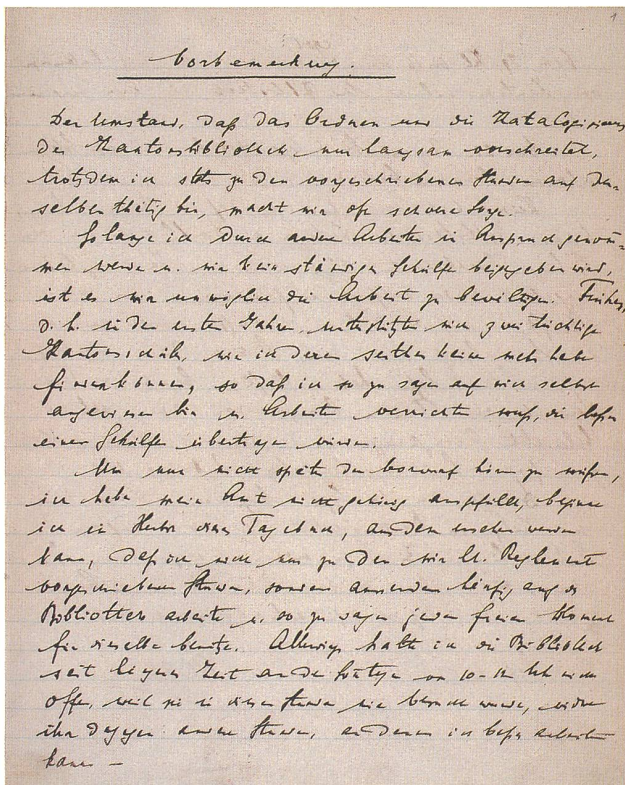 1
Vorbemerkung.
Der Umstand, daß das Ordnen und die Katalogisierung
der Kantonsbibliothek nur langsam vorschreitet,
trotzdem ich stets zu den vorgeschriebenen Stunden auf der-
selben thätig bin, macht mir oft schwere Sorge.
Solange ich durch andere Arbeiten in Anspruch genom-
men werde u. mir kein ständiger Gehilfe beigegeben wird,
ist es mir unmöglich die Arbeit zu bewältigen. Früher,
d. h. in den ersten Jahren, unterstützten mich zwei tüchtige
Kantonsschüler, wie ich deren seither keine mehr habe
finden können, so daß ich so zu sagen auf mich selbst
angewiesen bin u. Arbeiten verrichten muß, die besser
einem Gehilfen übertragen würden.
Um nur nicht später den Vorwurf hören zu müssen,
ich habe mein Amt nicht gehörig ausgefüllt, beginne
ich im Herbst dieses Tagebuch, aus dem ersehen werden
kann, daß ich nicht nur zu den mir lt. Reglement
vorgeschriebenen Stunden, sondern ausserdem häufig auf der
Bibliothek arbeite u. so zu sagen jeden freien Moment
für dieselbe benütze. Allerdings halte ich die Bibliothek
seit längerer Zeit an den von 10-12 Uhr nicht
offen, weil sie in diesen Stunden nie besucht wurde, widme
ihr dagegen andere Stunden, an denen ich besser arbeiten
kann —